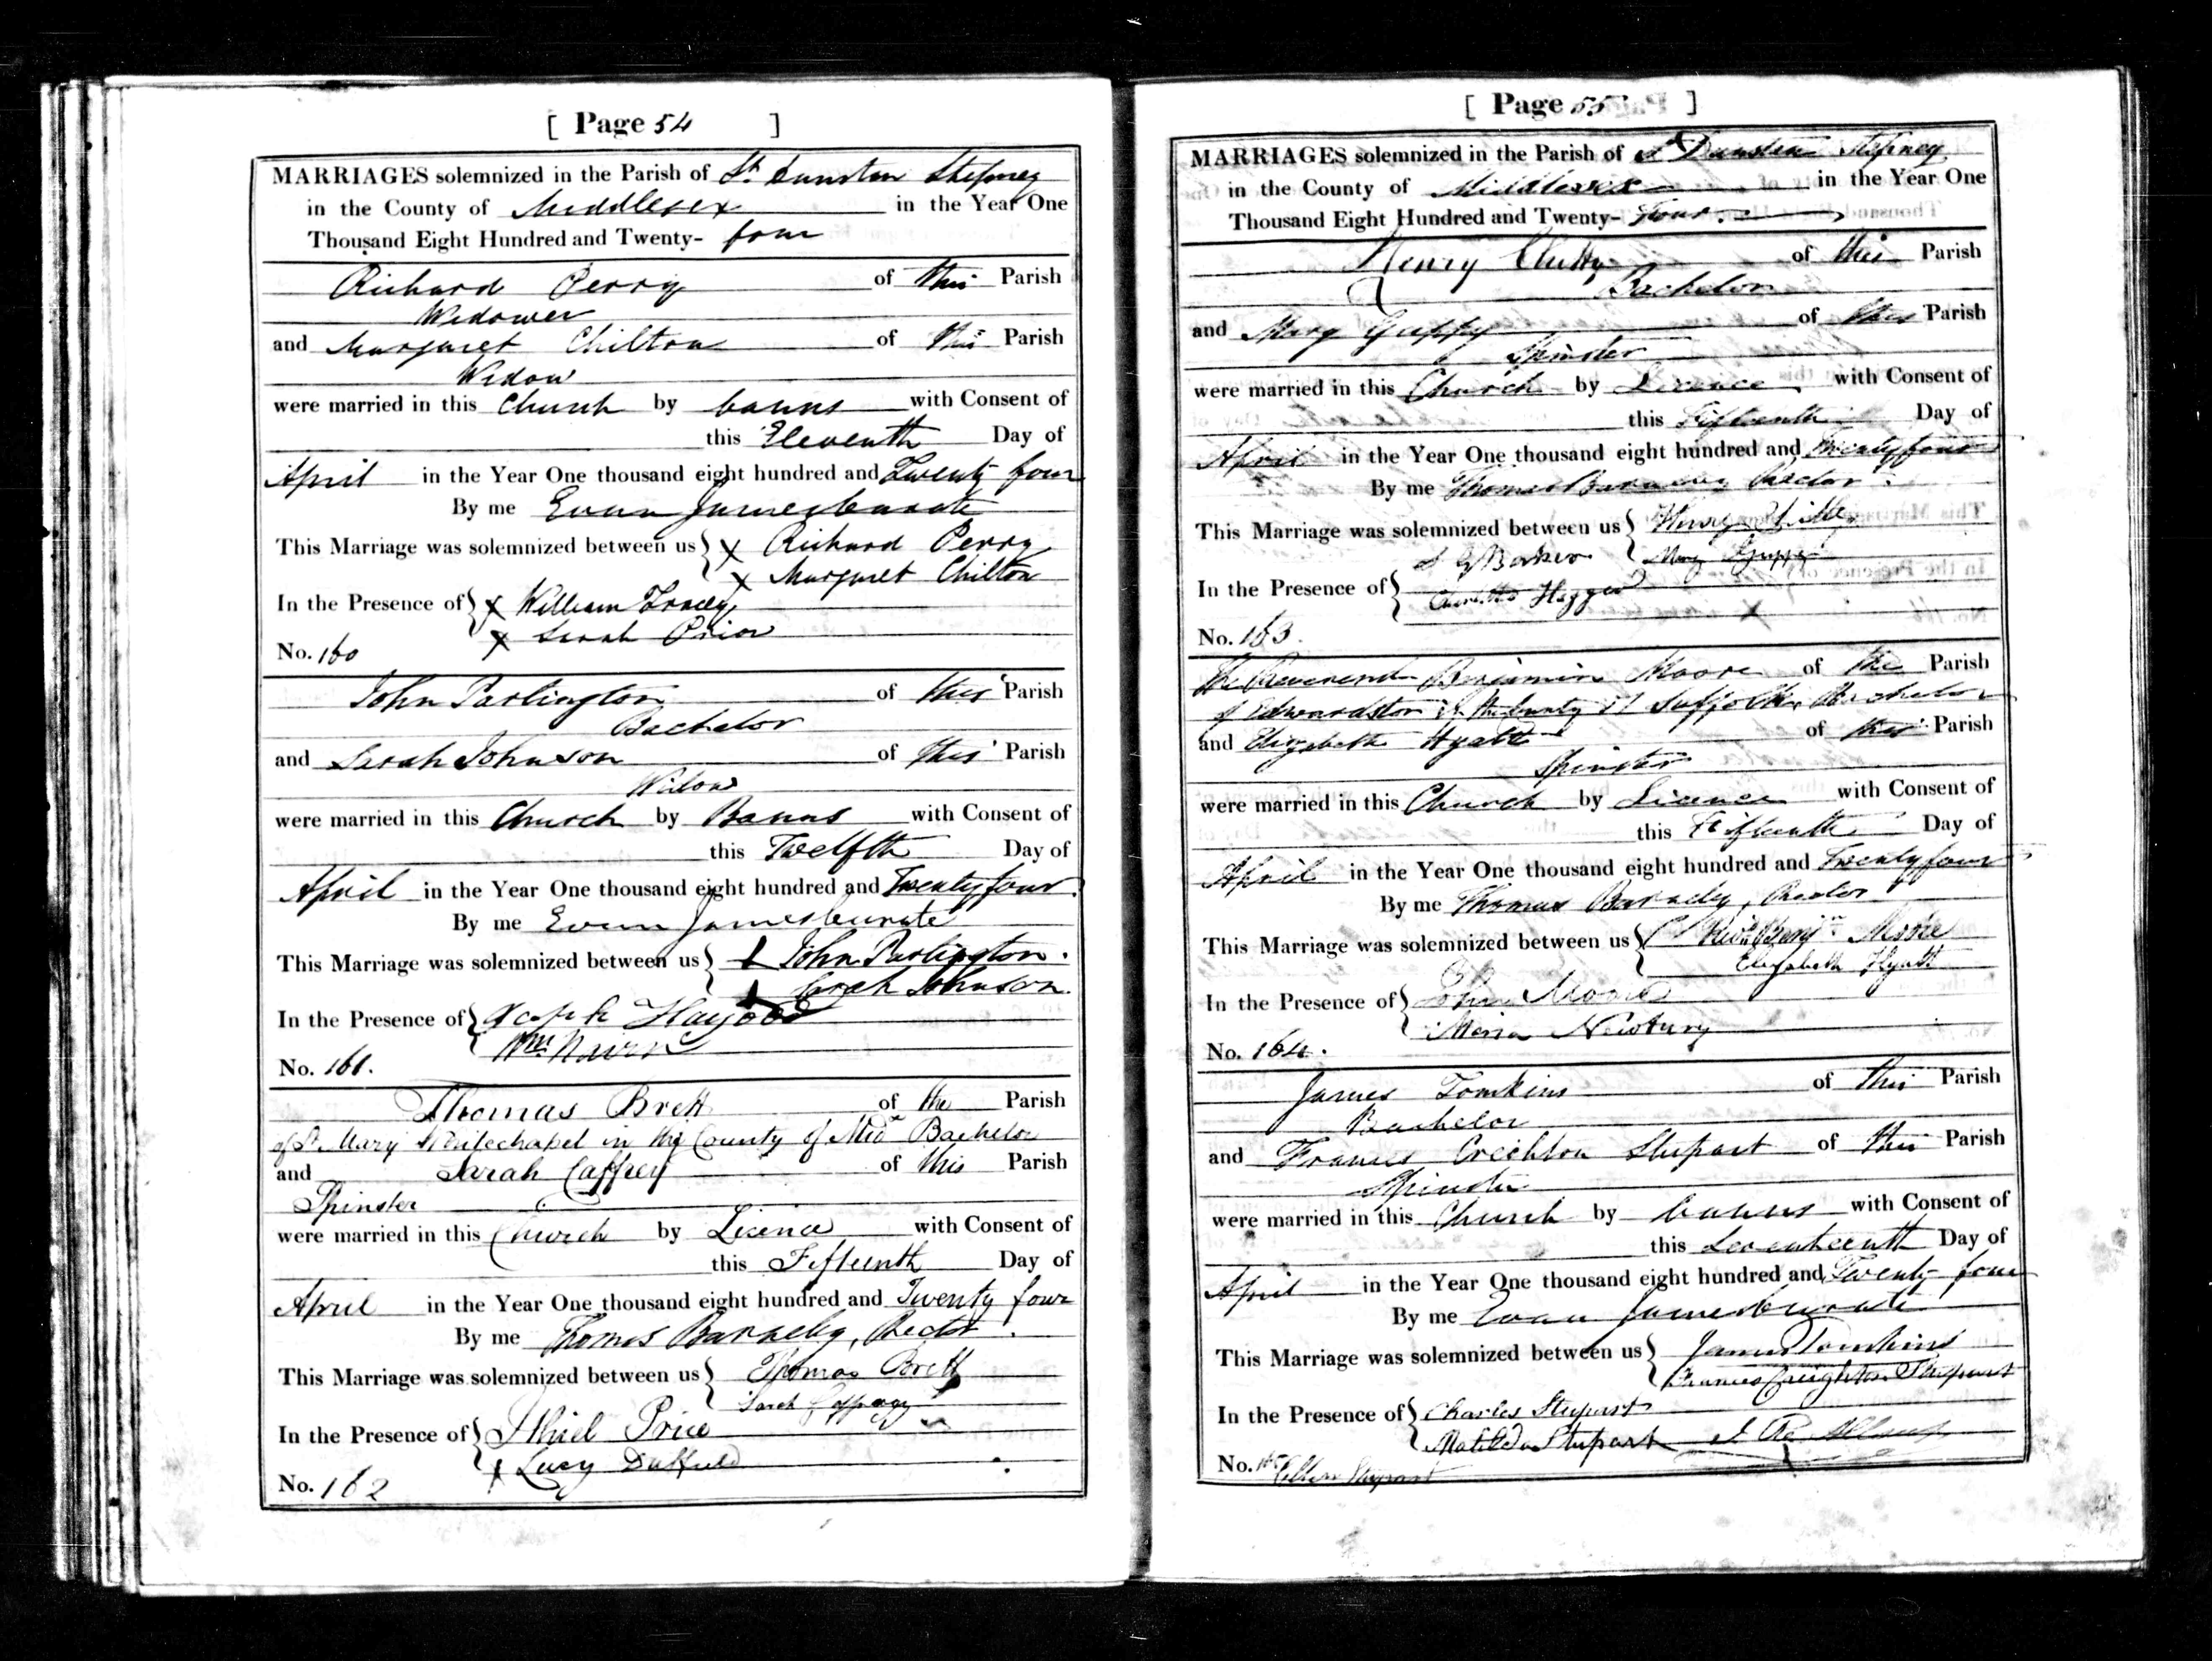 [ Page 54 ]
MARRIAGES solemnized in the Parish of St. Dunstan Stepney
in the County of Middlesex in the Year One
Thousand Eight Hundred and Twenty- four
Richard Perry of this Parish
Widower
and Margaret Chilton of this Parish
Widow
were married in this Church by banns with Consent of
this Eleventh Day of
April in the Year One thousand eight hundred and Twenty four
By me Evan James Curate
This Marriage was solemnized between us X Richard Perry
X Margaret Chilton
In the Presence of X William Tracey
X Sarah Prior
No. 160
John Partington of this Parish
Bachelor
and Sarah Johnson of this Parish
Widow
were married in this Church by Banns with Consent of
this Twelfth Day of
April in the Year One thousand eight hundred and Twenty four
By me Evan James Curate
This Marriage was solemnized between us X John Partington.
X Sarah Johnson
In the Presence of Joseph
Wm
No. 161.
Thomas Brett of the Parish
of St. Mary Whitechapel in the County of Midx Bachelor
and Sarah Caffrey of this Parish
Spinster
were married in this Church by Licence with Consent of
this Fifteenth Day of
April in the Year One thousand eight hundred and Twenty four
By me Thomas Barneby, Rector.
This Marriage was solemnized between us Thomas Brett
Sarah
In the Presence of Price
X Lucy Duffield
No. 162
[ Page 55 ]
MARRIAGES solemnized in the Parish of St Dunstan Stepney
in the County of Middlesex in the Year One
Thousand Eight Hundred and Twenty- Four.
Henry of this Parish
Bachelor
and Mary Guppy of this Parish
Spinster
were married in this Church by Licence with Consent of
this Fifteenth Day of
April in the Year One thousand eight hundred and Twenty four
By me Thomas Barneby Rector.
This Marriage was solemnized between us Henry
Mary Guppy
In the Presence of Barker
No. 163.
The Reverend Benjamin Moore of the Parish
of Edwardston in the County of Suffolk, Bachelor
and Elizabeth Hyatt of this Parish
Spinster
were married in this Church by Licence with Consent of
this Fifteenth Day of
April in the Year One thousand eight hundred and Twenty four
By me Thomas Barneby, Rector
This Marriage was solemnized between us Revd. Benjn. Moore
Elizabeth Hyatt
In the Presence of John Moore
Maria Newbury
No. 164.
James Tomkins of this Parish
Bachelor
and Frances Creighton Stupart of this Parish
Spinster
were married in this Church by banns with Consent of
this Seventeenth Day of
April in the Year One thousand eight hundred and Twenty four
By me Evan James Curate
This Marriage was solemnized between us James Tomkins
Frances Creighton Stupart
In the Presence of Charles Stupart
Matilda Stupart
No. Stupart